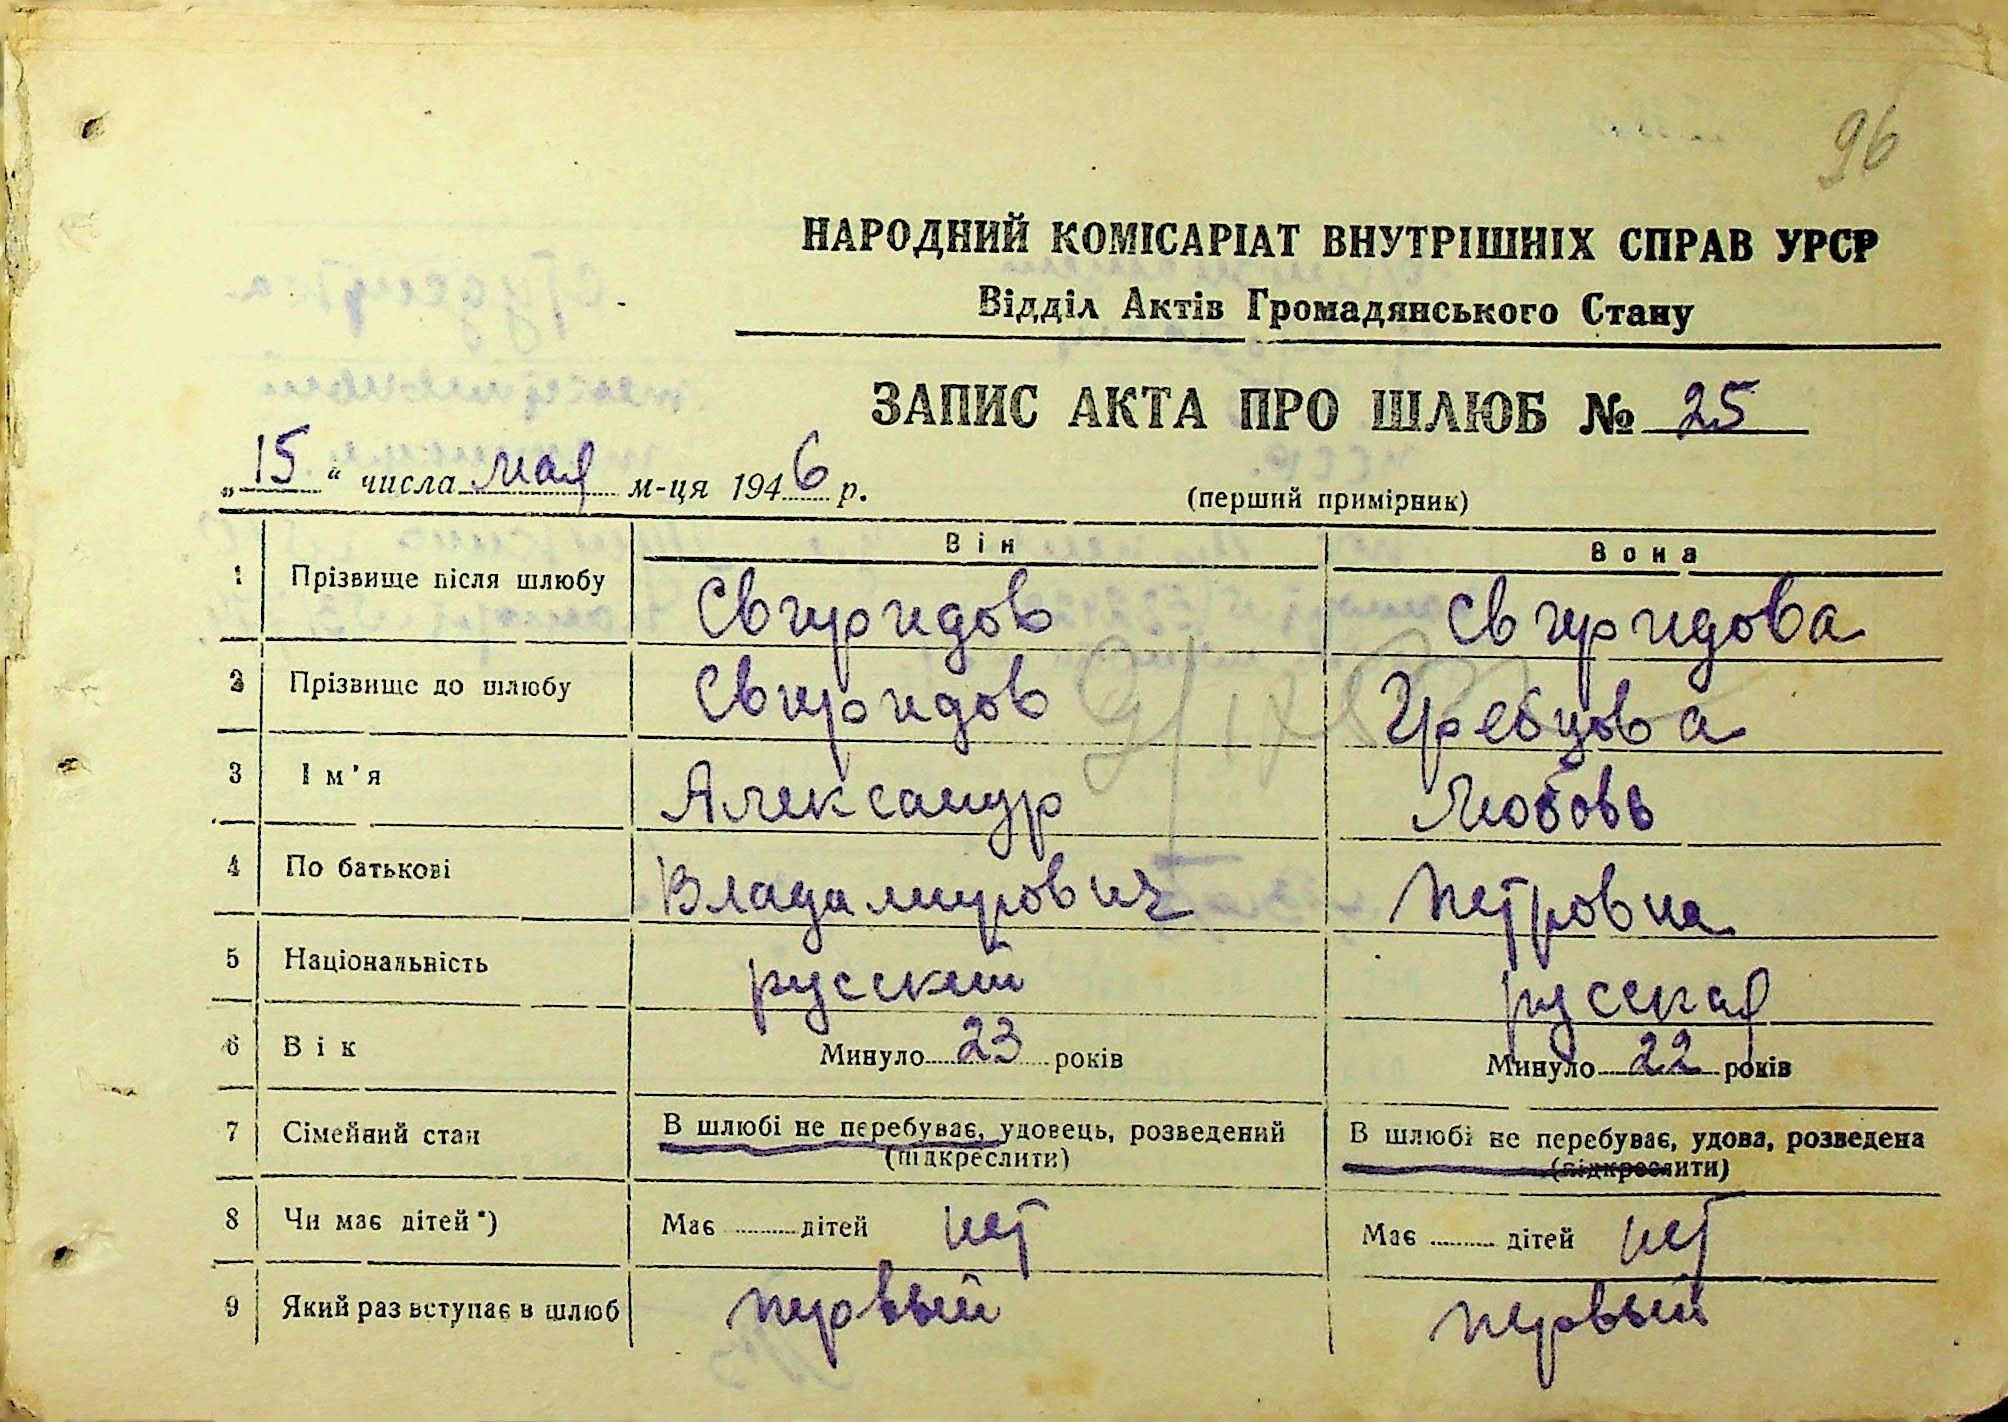 96
НАРОДНИЙ КОМІСАРІАТ ВНУТРІШНІХ СПРАВ УРСР
Відділ Актів Громадянського Стану
ЗАПИС АКТА ПРО ШЛЮБ № 25
„15“ числа мая м-ця 1946 р.
(перший примірник)
Він Вона
1 Прізвище після шлюбу Свиридов Свиридова
2 Прізвище до шлюбу Свиридов Гребцова
3 Ім'я Александр Любовь
4 По батькові Владамирович Петровна
5 Національність русский русская
6 Вік Минуло 23 років Минуло 22 років
7 Сімейний стан В шлюбі не перебуває, удовець, розведений В шлюбі не перебуває, удова, розведена
(підкреслити) (підкреслити)
8 Чи має дітей*) Має дітей нет Має дітей нет
9 Який раз вступає в шлюб первый первый